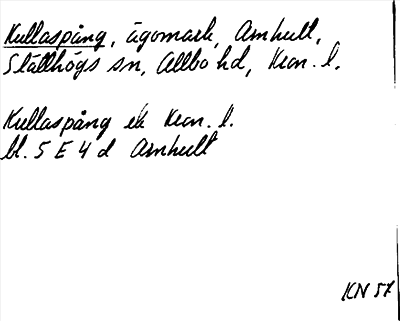 Kullaspång, ägomark, Arnhult,
Slätthögs sn, Allbo hd, Kron. l.
Kullaspång ek Kron. l.
bl. 5 E 4 d Arnhult
KN 57